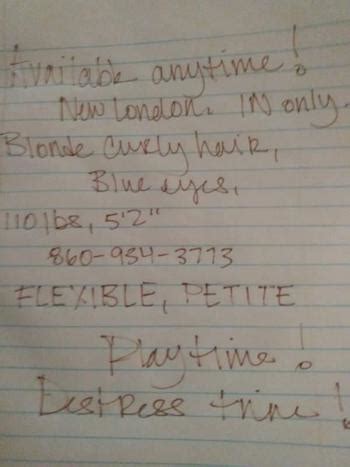 Available anytime!
New London. IN only.
Blonde curly hair,
Blue eyes,
110 lbs, 5'2"
860-934-3773
FLEXIBLE, PETITE
Playtime!
Destress time!